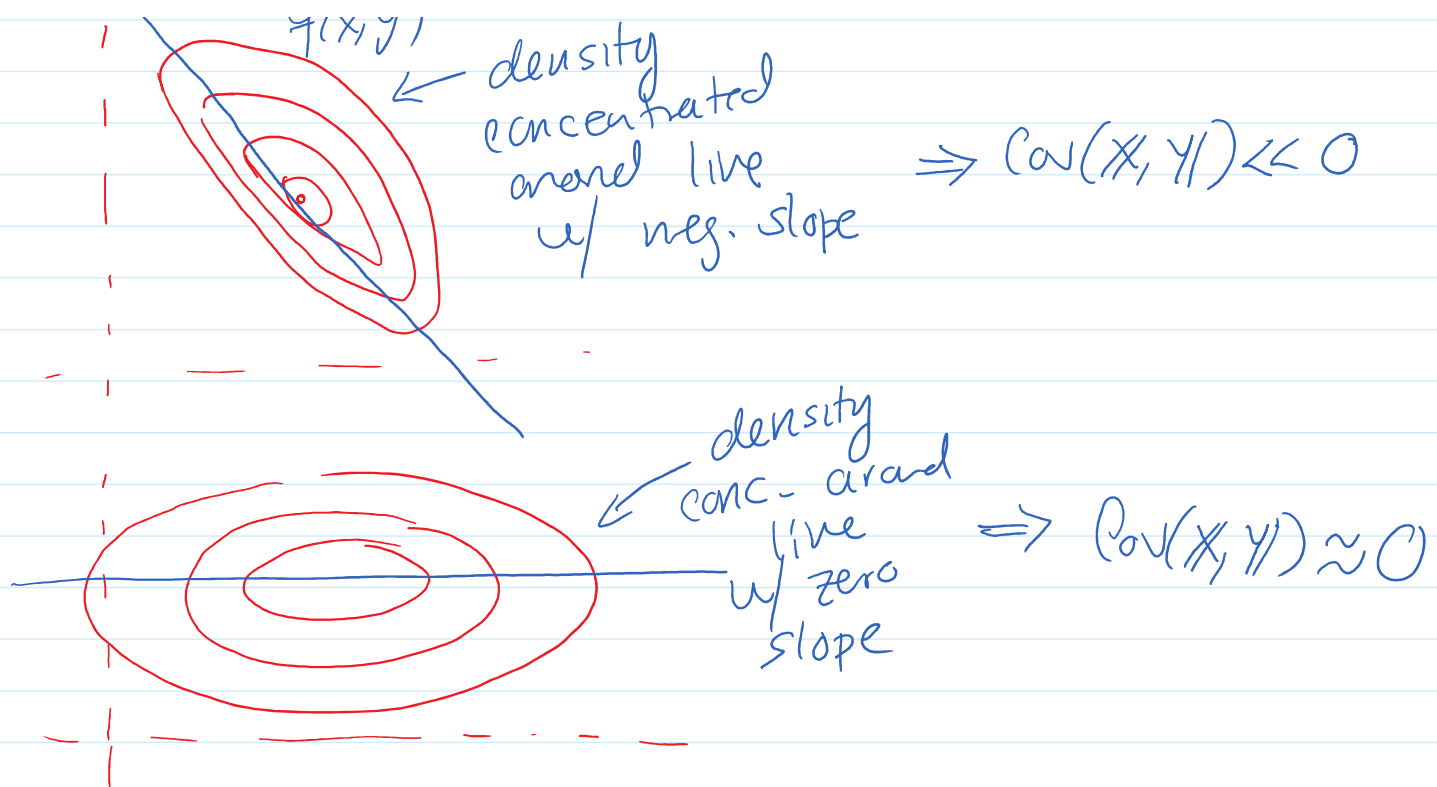 f(x,y)
density
concentrated
around line
w/ neg. slope
⇒ Cov(X,Y) << 0
density
conc. around
line
w/ zero
slope
⇒ Cov(X,Y) ≈ 0